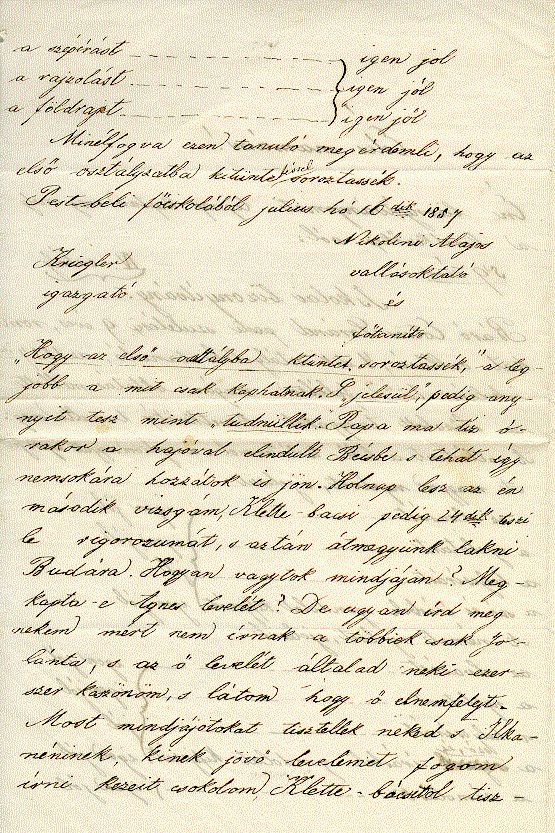 a szépírást - - - - - - igen jól
a rajzolást - - - - - - igen jól
a földrapt - - - - - - igen jól
Minélfogva ezen tanuló megérdemli, hogy az
első osztályzatba kitüntetéssel soroztassék.
Pest-beli főiskolából julius hó 16dik 1857
Nikolini Alajos
Kriegler vallásoktató
igazgató és
főtanitó
„Hogy az első osztályba kitüntet. soroztassék," a leg-
jobb a mit csak kaphatnak. S „jelesül", pedig any-
nyit tesz mint, tudniillik. Papa ma tiz ó-
rakor a hajóval elindult Bécsbe s tehát így
nemsokára hozzátok is jön. Holnap lesz az én
második vizsgám, Klette-bacsi pedig 24dik teszi
le rigorozumát, s aztán átmegyünk lakni
Budára. Hogyan vagytok mindjáján? Meg-
kapta-e Agnes levelét? De ugyan írd meg
nekem mert nem írnak a többiek csak Jo-
lánta, s az ő levelét általad neki ezer
szer köszönöm, s látom hogy ő elnemfelejt.
Most mindjájótokat tisztellek neked s Ilka
néninek, kinek jövő levelemet fogom
írni kezeit csokolom, Klette-bácsitol tisz-